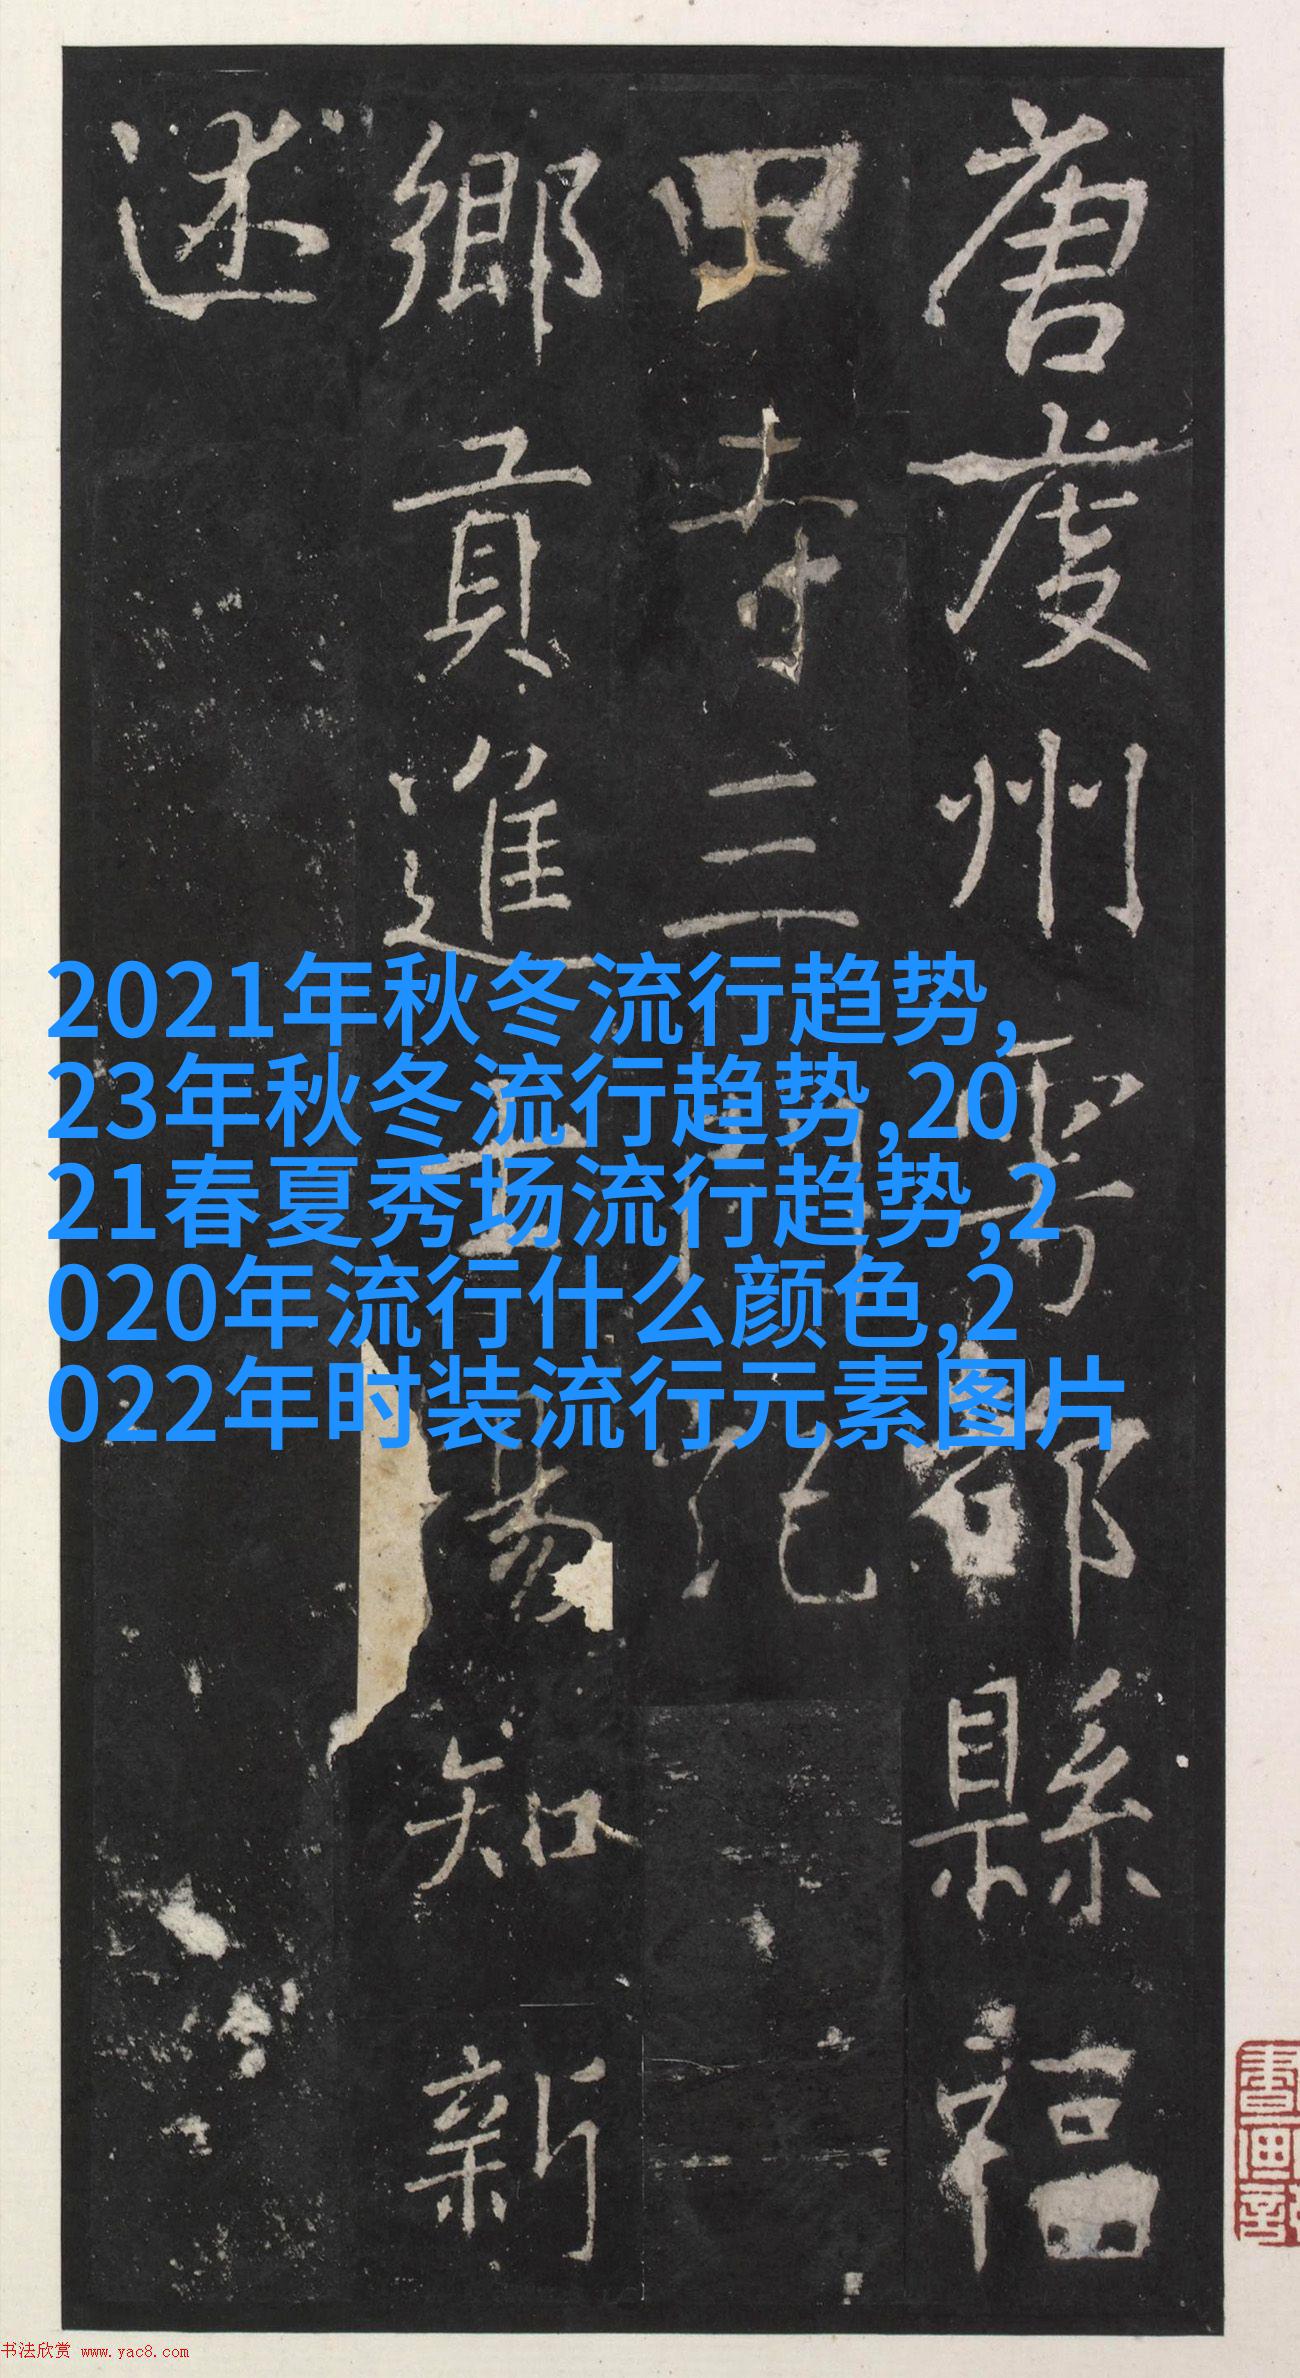 唐虔州雩都縣福
田寺三門記
鄉貢進士知新
述
2021年秋冬流行趋势,
23年秋冬流行趋势,20
21春夏秀场流行趋势,2
020年流行什么颜色,2
022年时装流行元素图片
书法欣赏 www.yac8.com